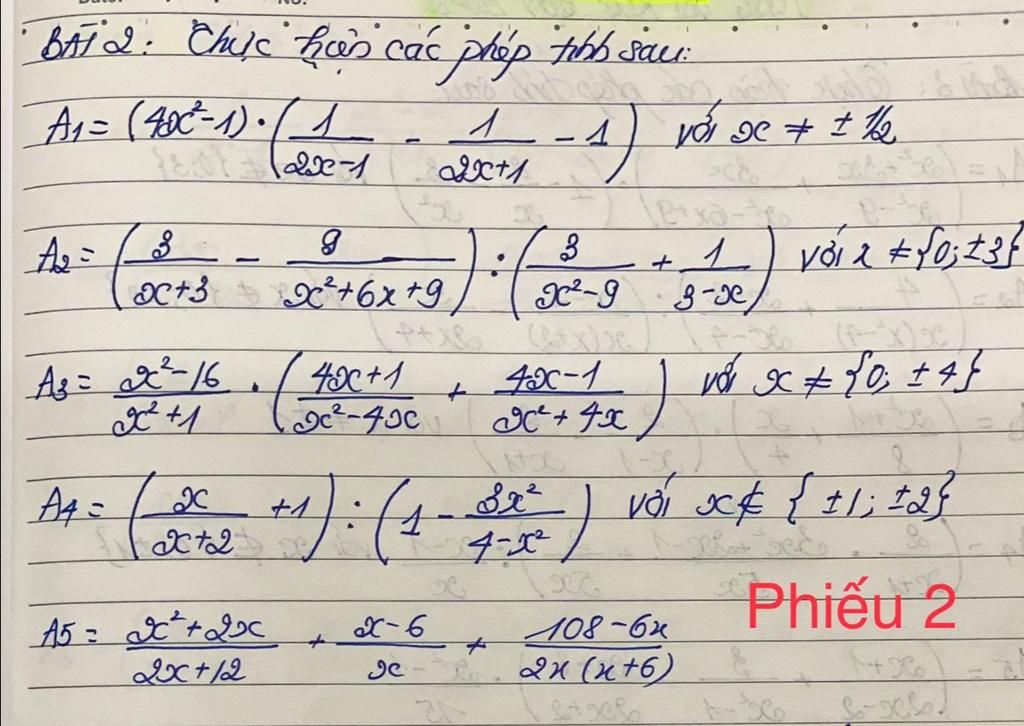 BÀI 2: Thực hiện các phép tính sau:
A1 = (4x²-1)·(1/(2x-1) - 1/(2x+1) - 1) với x ≠ ± 1/2
A2 = (3/(x+3) - 9/(x²+6x+9)) : (3/(x²-9) + 1/(3-x)) với x ≠ {0; ±3}
A3 = (x²-16)/(x²+1) · ((4x+1)/(x²-4x) + (4x-1)/(x²+4x)) với x ≠ {0; ±4}
A4 = (x/(x+2) + 1) : (1 - 3x²/(4-x²)) với x ∉ {±1; ±2}
Phiếu 2
A5 = (x²+2x)/(2x+12) + (x-6)/x + (108-6x)/(2x(x+6))